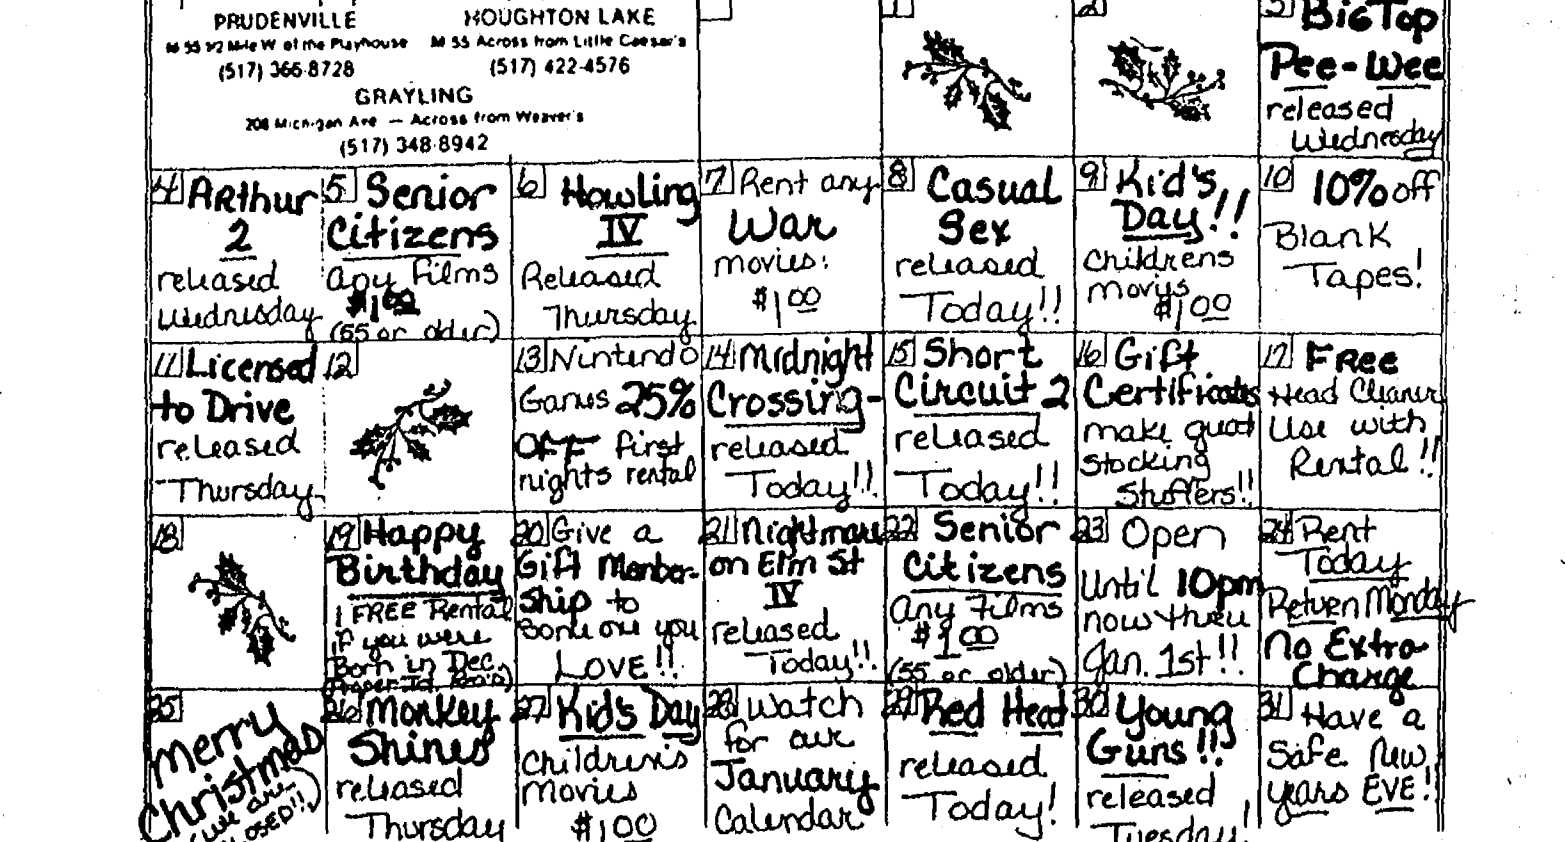 PRUDENVILLE
M-55 1/2 Mile W. of the Playhouse
(517) 366-8728
HOUGHTON LAKE
M 55 Across from Little Caesar's
(517) 422-4576
GRAYLING
208 Michigan Ave — Across from Weaver's
(517) 348-8942
1
2
3 Big Top
Pee-Wee
released
Wednesday
4 Arthur
2
released
Wednesday
5 Senior
Citizens
any films
$1.00
(55 or older)
6 Howling
IV
Released
Thursday
7 Rent any
War
movies:
$1.00
8 Casual
Sex
released
Today!!
9 Kid's
Day!!
childrens
movies
$1.00
10 10% off
Blank
Tapes!
11 Licensed
to Drive
released
Thursday
12
13 Nintendo
Games 25%
OFF first
nights rental
14 Midnight
Crossing-
released
Today!!
15 Short
Circuit 2
released
Today!!
16 Gift
Certificates
make great
stocking
Stuffers!!
17 Free
Head Cleaner
Use with
Rental!!
18
19 Happy
Birthday
1 FREE Rental
if you were
Born in Dec.
Proper Id. Req'd)
20 Give a
Gift Member-
ship to
someone you
LOVE!!
21 Nightmare
on Elm St
IV
released
Today!!
22 Senior
Citizens
any films
$1.00
(55 or older)
23 Open
Until 10pm
now thru
Jan. 1st!!
24 Rent
Today
Return Monday
No Extra
Charge
25
Merry
Christmas
(we are
CLOSED!!)
26 Monkey
Shines
released
Thursday
27 Kid's Day
Children's
movies
$1.00
28 Watch
for our
January
Calendar
29 Red Heat
released
Today!
30 Young
Guns!!
released
Tuesday!
31 Have a
Safe New
years EVE!!